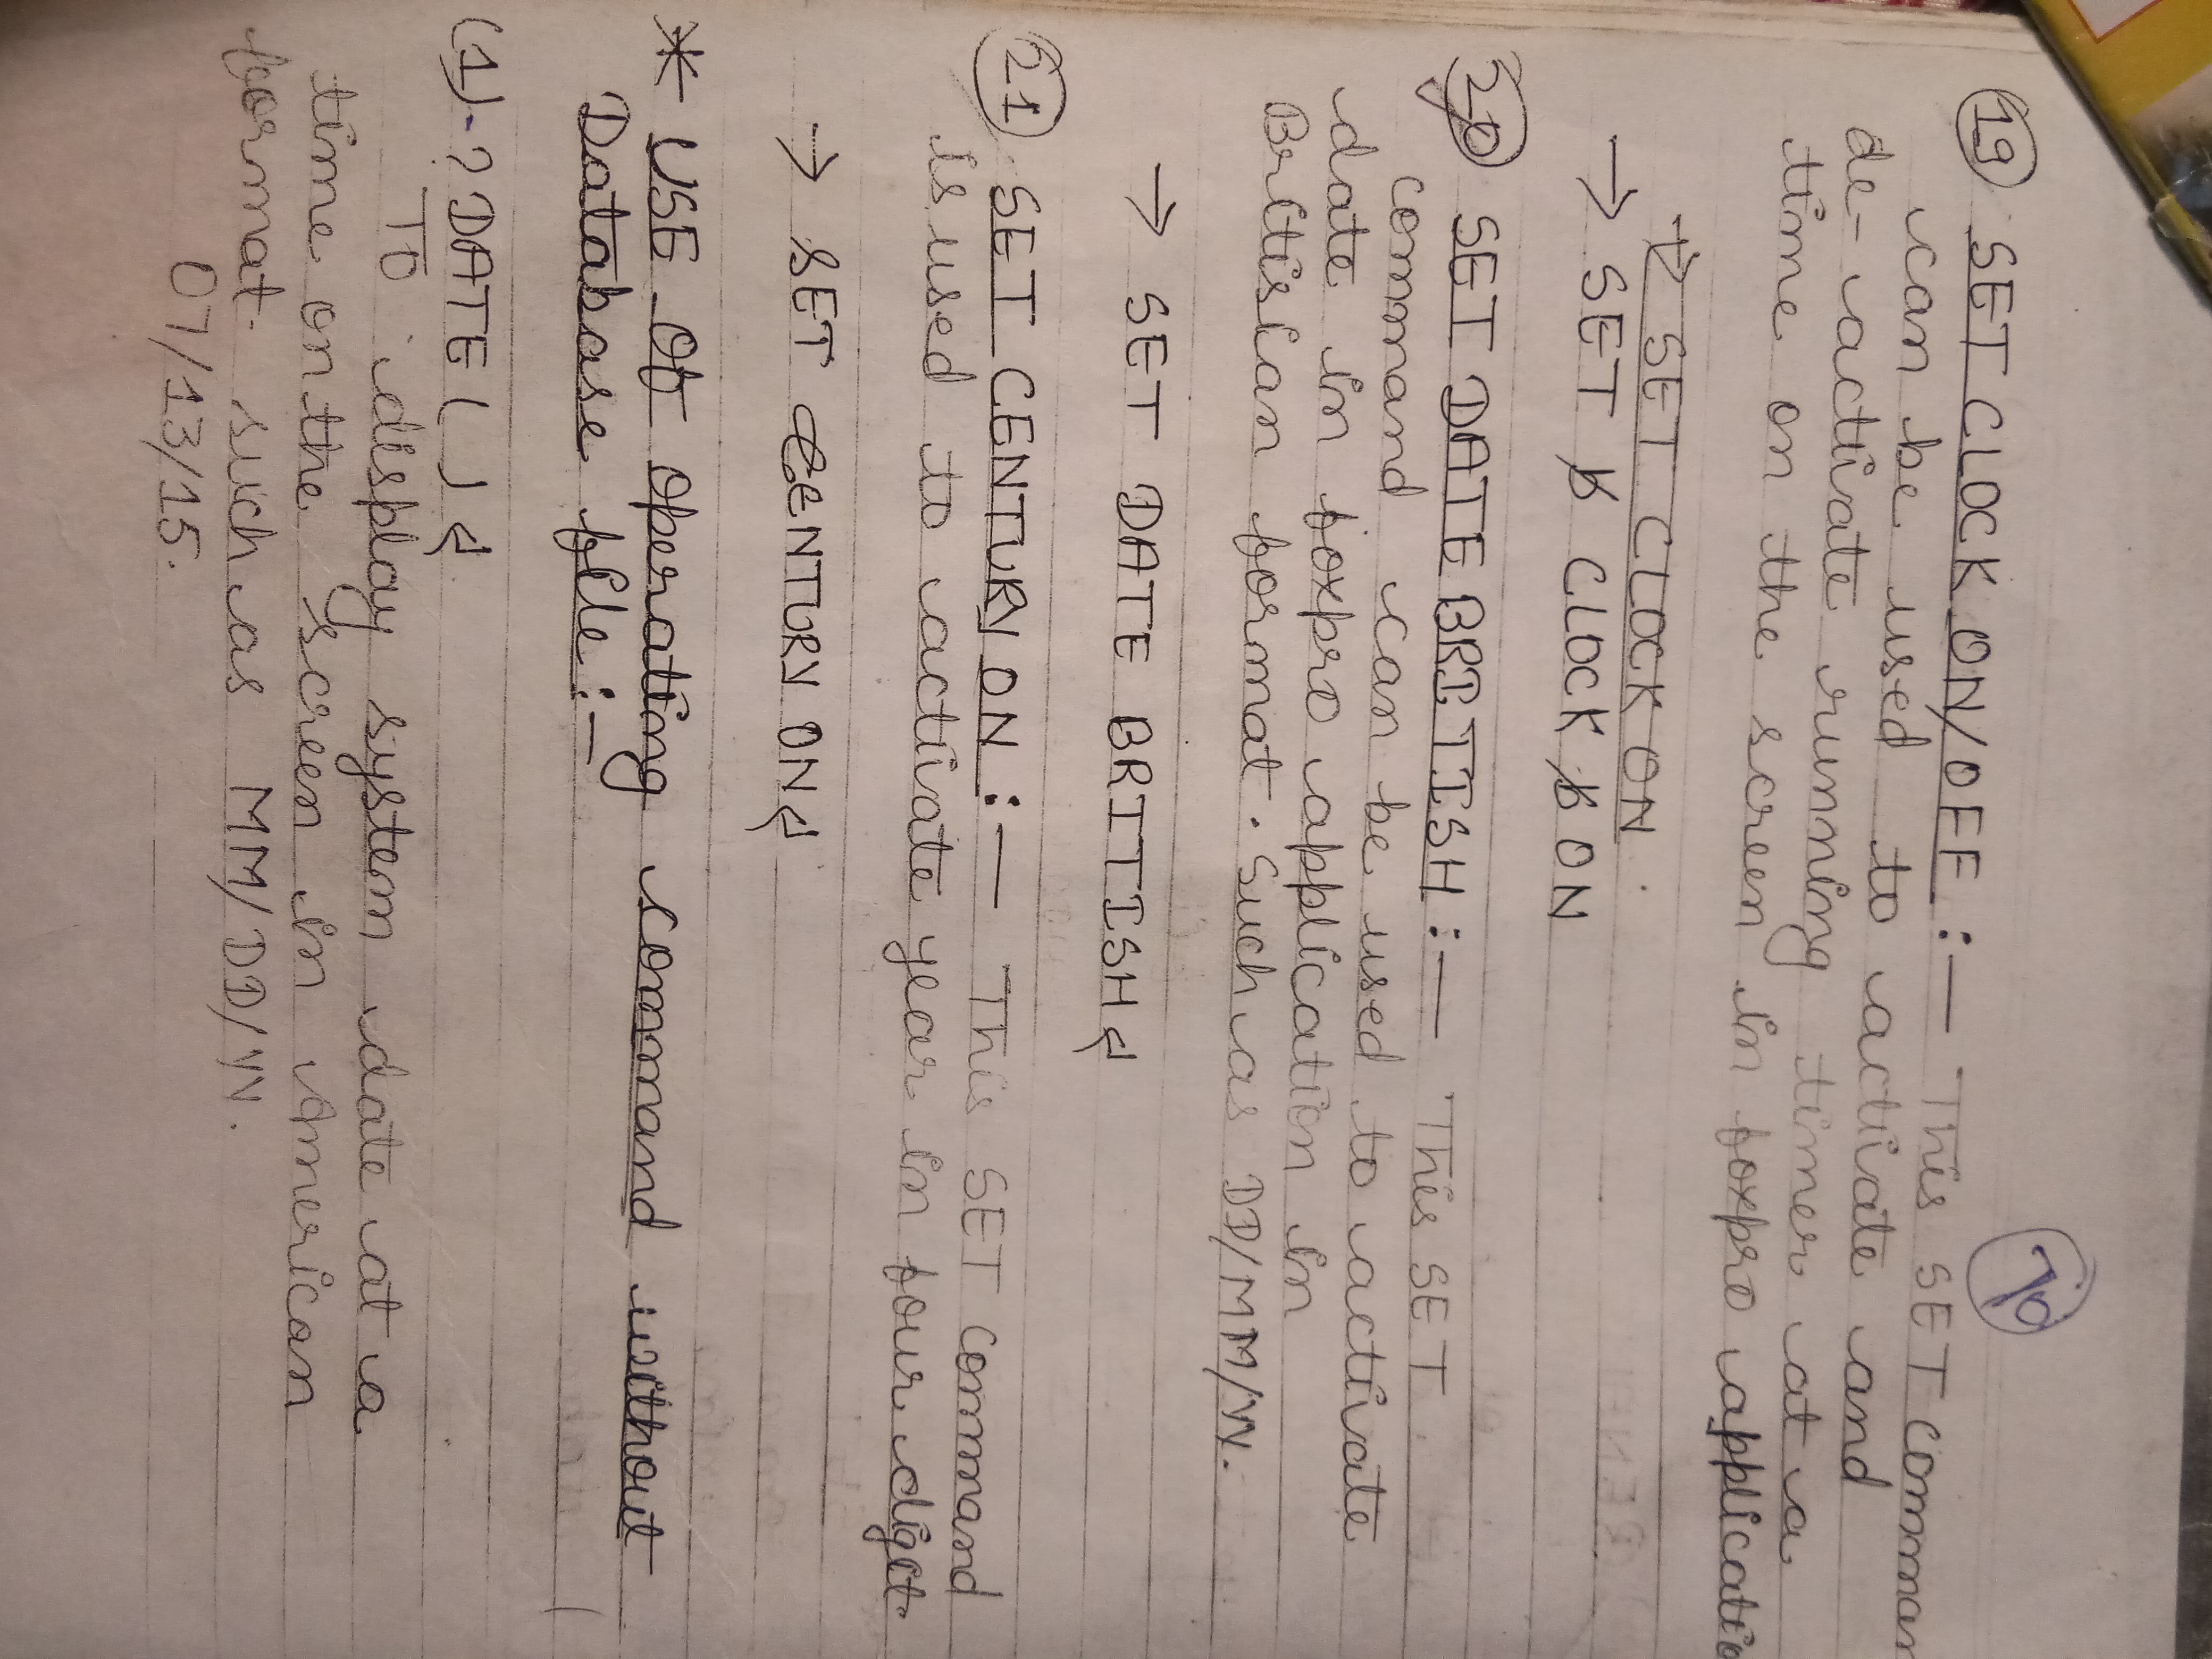 70
19 SET CLOCK ON/OFF :— This SET Comman
can be used to activate and
de-activate running timer at a
time on the screen in foxpro applicatio
→ SET CLOCK ON.
→ SET CLOCK ON
20 SET DATE BRITISH :— This SET
Command can be used to activate
date in foxpro application in
Britisian format. Such as DD/MM/YY.
→ SET DATE BRITISH
21 SET CENTURY ON :— This SET Command
is used to activate year in four digit.
→ SET CENTURY ON
* USE Of operating command without
Database file :—
(1)- ? DATE ( )
To display system date at a
time on the screen in American
format. such as MM/DD/YY.
07/13/15.